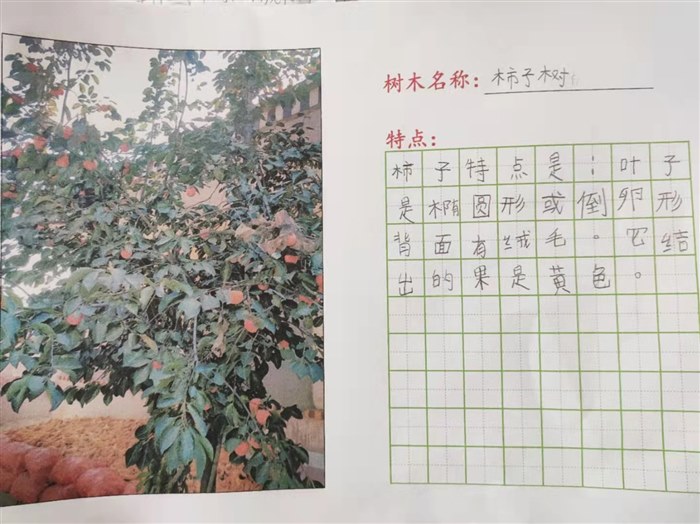 树木名称：柿子树
特点：
柿子特点是：叶子
是椭圆形或倒卵形
背面有绒毛。它结
出的果是黄色。